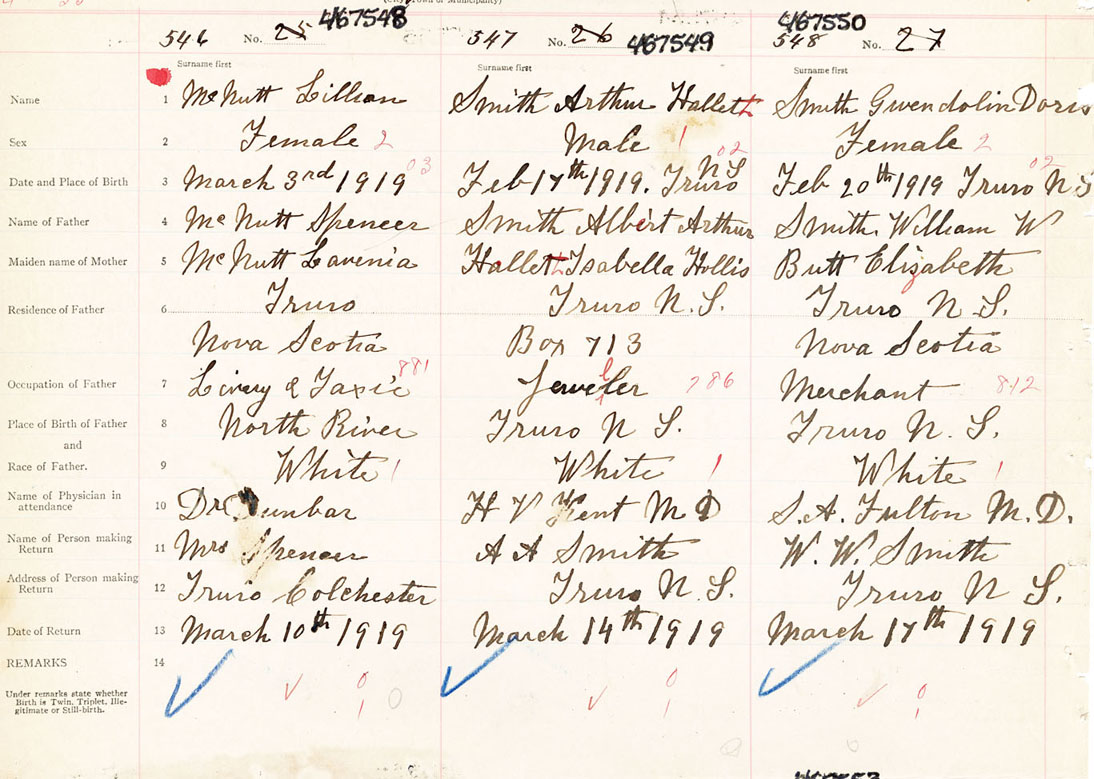 (City, Town or Municipality)
467548 467550
546 No. 25 547 No. 26 467549 548 No. 27
Surname first Surname first Surname first
Name 1 McNutt Lillian Smith Arthur Hallett Smith Gwendolin Doris
Sex 2 Female 2 Male 1 Female 2
Date and Place of Birth 3 March 3rd 1919 03 Feb 17th 1919. Truro N S 02 Feb 20th 1919 Truro N S 02
Name of Father 4 McNutt Spencer Smith Albert Arthur Smith. William W
Maiden name of Mother 5 McNutt Lavenia Hallett Isabella Hollis Butt Elizabeth
Residence of Father 6 Truro Truro N. S. Truro N. S.
Nova Scotia Box 713 Nova Scotia
Occupation of Father 7 Livery & Taxie 881 Jeweler 786 Merchant 812
Place of Birth of Father 8 North River Truro N S. Truro N. S.
and
Race of Father. 9 White 1 White 1 White 1
Name of Physician in
attendance 10 Dr. Dunbar H V Kent M D S. A. Fulton M. D.
Name of Person making
Return 11 Mrs Spencer A A Smith W. W. Smith
Address of Person making
Return 12 Truro Colchester Truro N. S. Truro N S.
Date of Return 13 March 10th 1919 March 14th 1919 March 17th 1919
REMARKS 14
Under remarks state whether
Birth is Twin, Triplet, Ille-
gitimate or Still-birth.